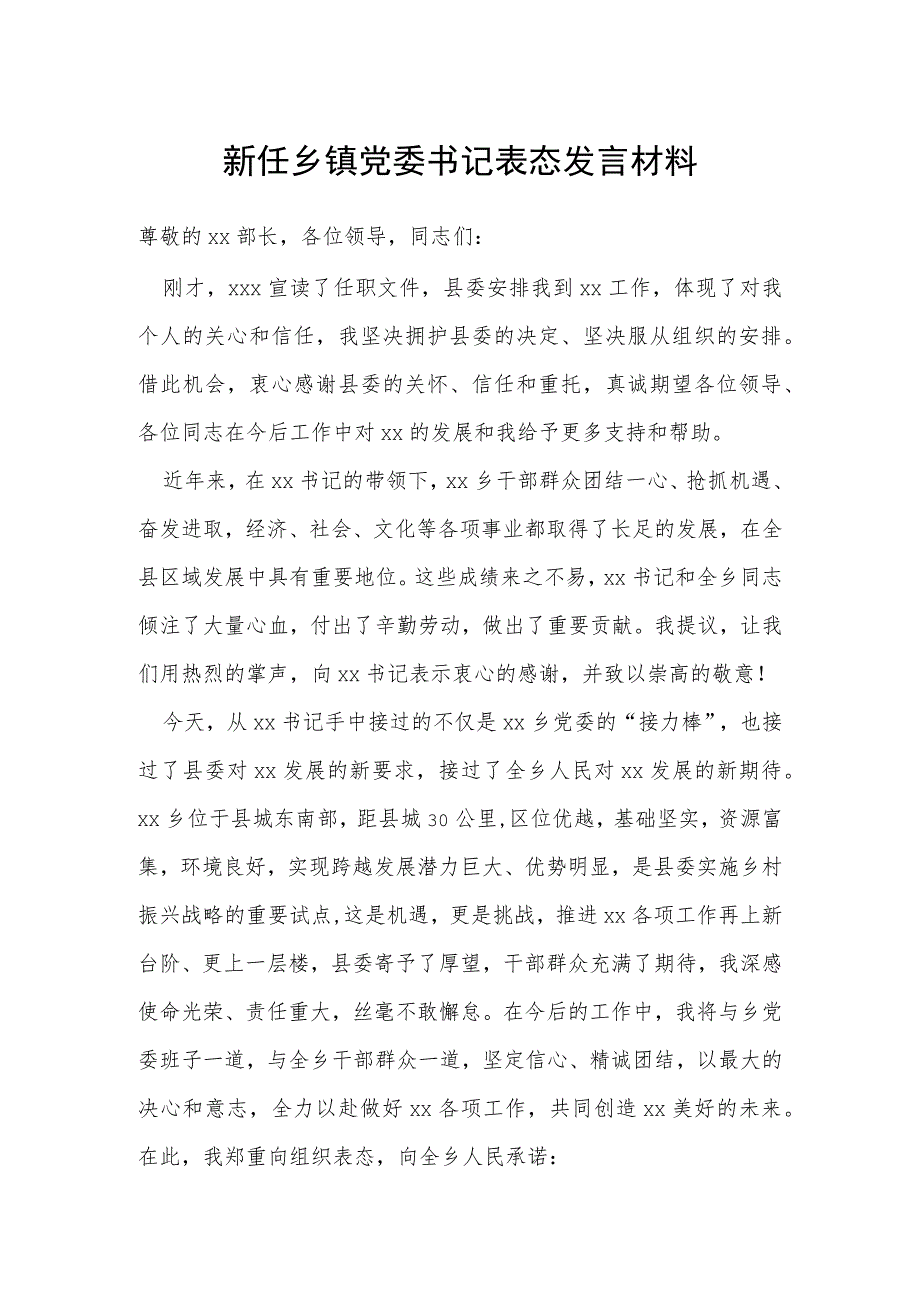 新任乡镇党委书记表态发言材料
尊敬的xx部长，各位领导，同志们：
刚才，xxx宣读了任职文件，县委安排我到xx工作，体现了对我
个人的关心和信任，我坚决拥护县委的决定、坚决服从组织的安排。
借此机会，衷心感谢县委的关怀、信任和重托，真诚期望各位领导、
各位同志在今后工作中对xx的发展和我给予更多支持和帮助。
近年来，在xx书记的带领下，xx乡干部群众团结一心、抢抓机遇、
奋发进取，经济、社会、文化等各项事业都取得了长足的发展，在全
县区域发展中具有重要地位。这些成绩来之不易，xx书记和全乡同志
倾注了大量心血，付出了辛勤劳动，做出了重要贡献。我提议，让我
们用热烈的掌声，向xx书记表示衷心的感谢，并致以崇高的敬意！
今天，从xx书记手中接过的不仅是xx乡党委的“接力棒”，也接
过了县委对xx发展的新要求，接过了全乡人民对xx发展的新期待。
xx乡位于县城东南部，距县城30公里,区位优越，基础坚实，资源富
集，环境良好，实现跨越发展潜力巨大、优势明显，是县委实施乡村
振兴战略的重要试点,这是机遇，更是挑战，推进xx各项工作再上新
台阶、更上一层楼，县委寄予了厚望，干部群众充满了期待，我深感
使命光荣、责任重大，丝毫不敢懈怠。在今后的工作中，我将与乡党
委班子一道，与全乡干部群众一道，坚定信心、精诚团结，以最大的
决心和意志，全力以赴做好xx各项工作，共同创造xx美好的未来。
在此，我郑重向组织表态，向全乡人民承诺：